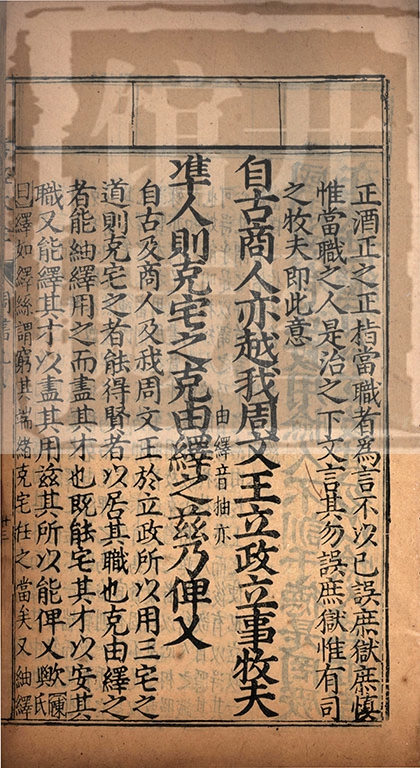 正酒正之正指當職者爲言不以已誤庶獄庶慎
惟當職之人是治之下文言其勿誤庶獄惟有司
之牧夫即此意
自古商人亦越我周文王立政立事牧夫
準人則克宅之克由繹之兹乃俾乂
由繹音抽亦
自古及商人及我周文王於立政所以用三宅之
道則克宅之者能得賢者以居其職也克由繹之
者能紬繹用之而盡其才也既能宅其才以安其
職又能繹其才以盡其用兹其所以能俾乂歟陳氏
曰繹如繹絲謂窮其端緒克宅任之當矣又紬繹